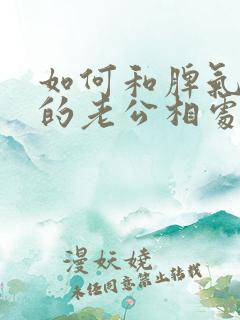 如何和脾氣
的老公相處
漫妖嬈
未经同意禁止转载